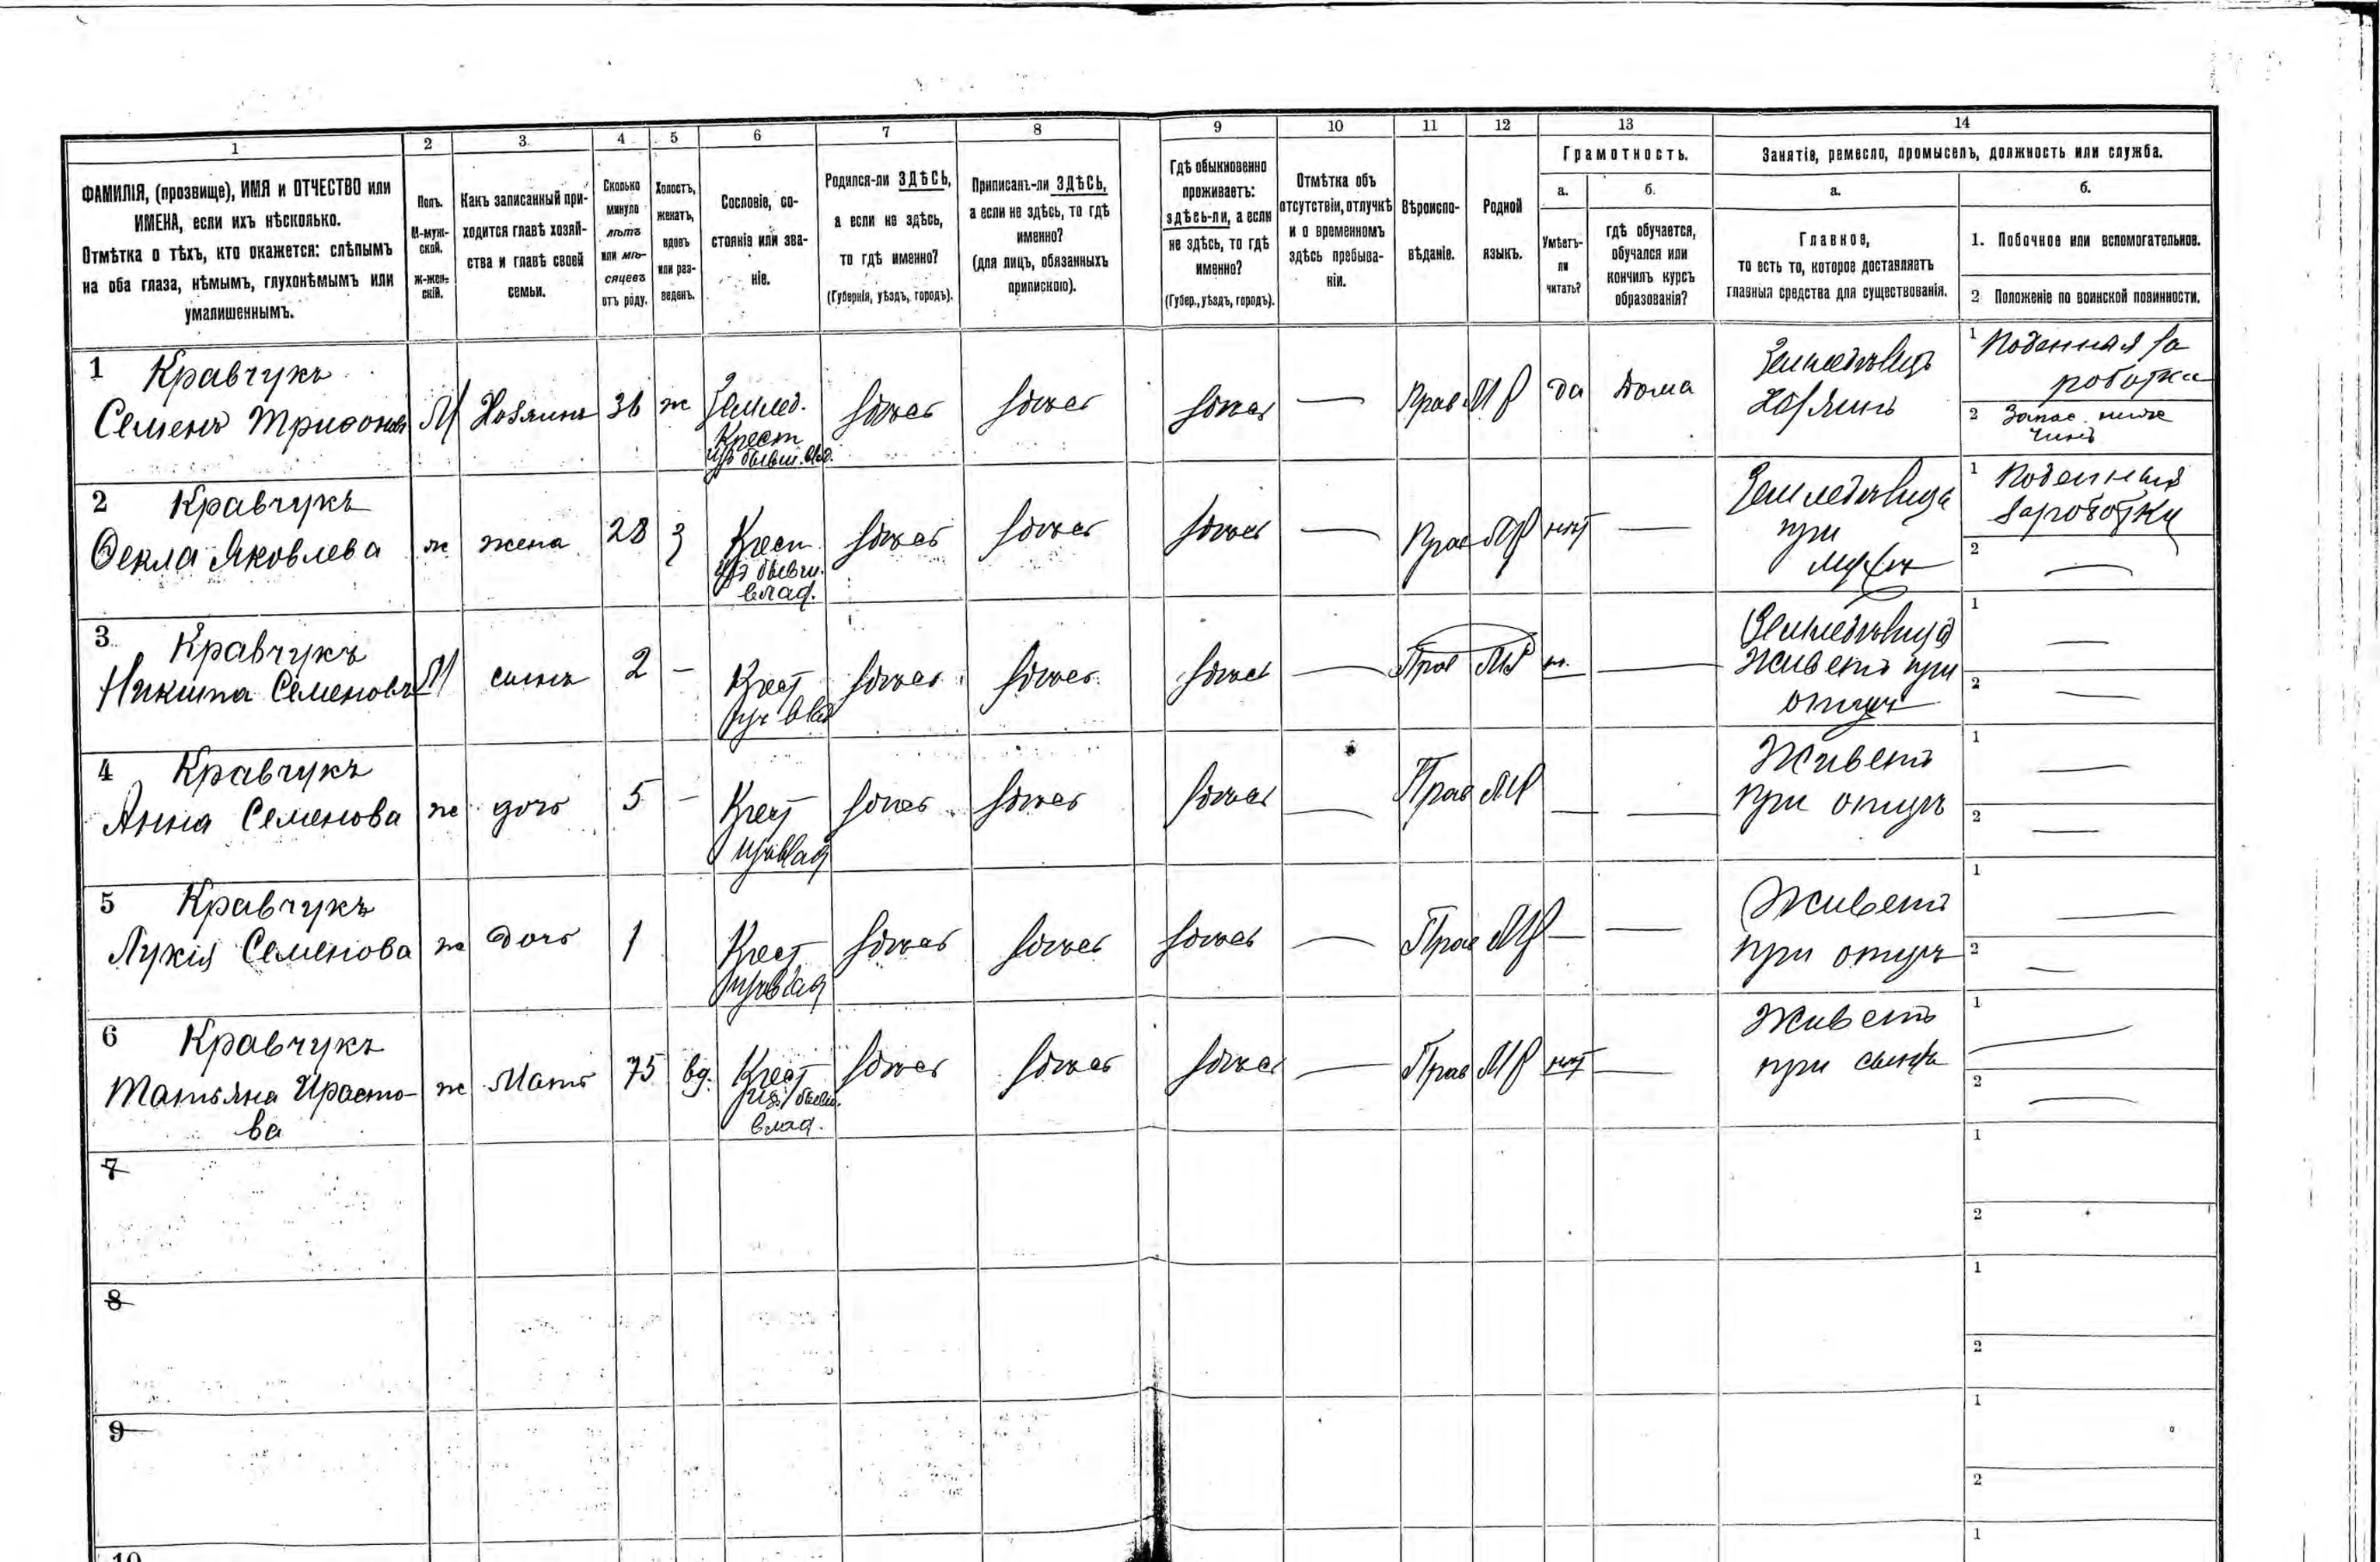 1
2
3.
4
5
6
7
8
9
10
11
12
13
14
ФАМИЛІЯ, (прозвище), ИМЯ и ОТЧЕСТВО или
ИМЕНА, если ихъ нѣсколько.
Отмѣтка о тѣхъ, кто окажется: слѣпымъ
на оба глаза, нѣмымъ, глухонѣмымъ или
умалишеннымъ.
Полъ.
М-муж-
ской.
Ж-жен-
скій.
Какъ записанный при-
ходится главѣ хозяй-
ства и главѣ своей
семьи.
Сколько
минуло
лѣтъ
или мѣ-
сяцевъ
отъ роду.
Холостъ,
женатъ,
вдовъ
или раз-
веденъ.
Сословіе, со-
стояніе или зва-
ніе.
Родился-ли ЗДѢСЬ,
а если не здѣсь,
то гдѣ именно?
(Губернія, уѣздъ, городъ).
Приписанъ-ли ЗДѢСЬ,
а если не здѣсь, то гдѣ
именно?
(для лицъ, обязанныхъ
припискою).
Гдѣ обыкновенно
проживаетъ:
здѣсь-ли, а если
не здѣсь, то гдѣ
именно?
(Губер., уѣздъ, городъ).
Отмѣтка объ
отсутствіи, отлучкѣ
и о временномъ
здѣсь пребыва-
ніи.
Вѣроиспо-
вѣданіе.
Родной
языкъ.
Грамотность.
а.
Умѣетъ-
ли
читать?
б.
гдѣ обучается,
обучался или
кончилъ курсъ
образованія?
Занятіе, ремесло, промыселъ, должность или служба.
а.
Главное,
то есть то, которое доставляетъ
главныя средства для существованія.
б.
1. Побочное или вспомогательное.
2 Положеніе по воинской повинности.
1 Кравчукъ
Семенъ Трифоновъ
М
Хозяинъ
36
ж
Землед.
Крест
изъ бывш. влад.
здѣсь
здѣсь
здѣсь
—
Прав
МР
да
дома
Земледѣлецъ
Хозяинъ
1 Поденная за
роботки
2 Запас. ниж
чинъ
2 Кравчукъ
Ѳекла Яковлева
ж
жена
28
з
Крест
изъ бывш.
влад.
здѣсь
здѣсь
здѣсь
—
Прав
МР
нѣт
—
Земледѣлица
при
мужѣ
1 Поденный
заработки
2 —
3. Кравчукъ
Никита Семеновъ
М
сынъ
2
—
Крест
изъ влад
здѣсь
здѣсь
здѣсь
—
Прав
МР
н.
—
Живетъ при
отцѣ
1 —
2 —
4 Кравчукъ
Анна Семенова
ж
дочь
5
—
Крест
изъ влад
здѣсь
здѣсь
здѣсь
—
Прав
МР
—
—
Живетъ
при отцѣ
1 —
2 —
5 Кравчукъ
Лукія Семенова
ж
дочь
1
Крест
изъ влад
здѣсь
здѣсь
здѣсь
—
Прав
МР
—
—
Живетъ
при отцѣ
1 —
2 —
6 Кравчукъ
Татьяна Ирасто-
ва
ж
Мать
75
вд.
Крест
изъ бывш.
влад.
здѣсь
здѣсь
здѣсь
—
Прав
МР
нѣт
—
Живетъ
при сынѣ
1 —
2 —
7
1
2
8
1
2
9
1
2
10
1